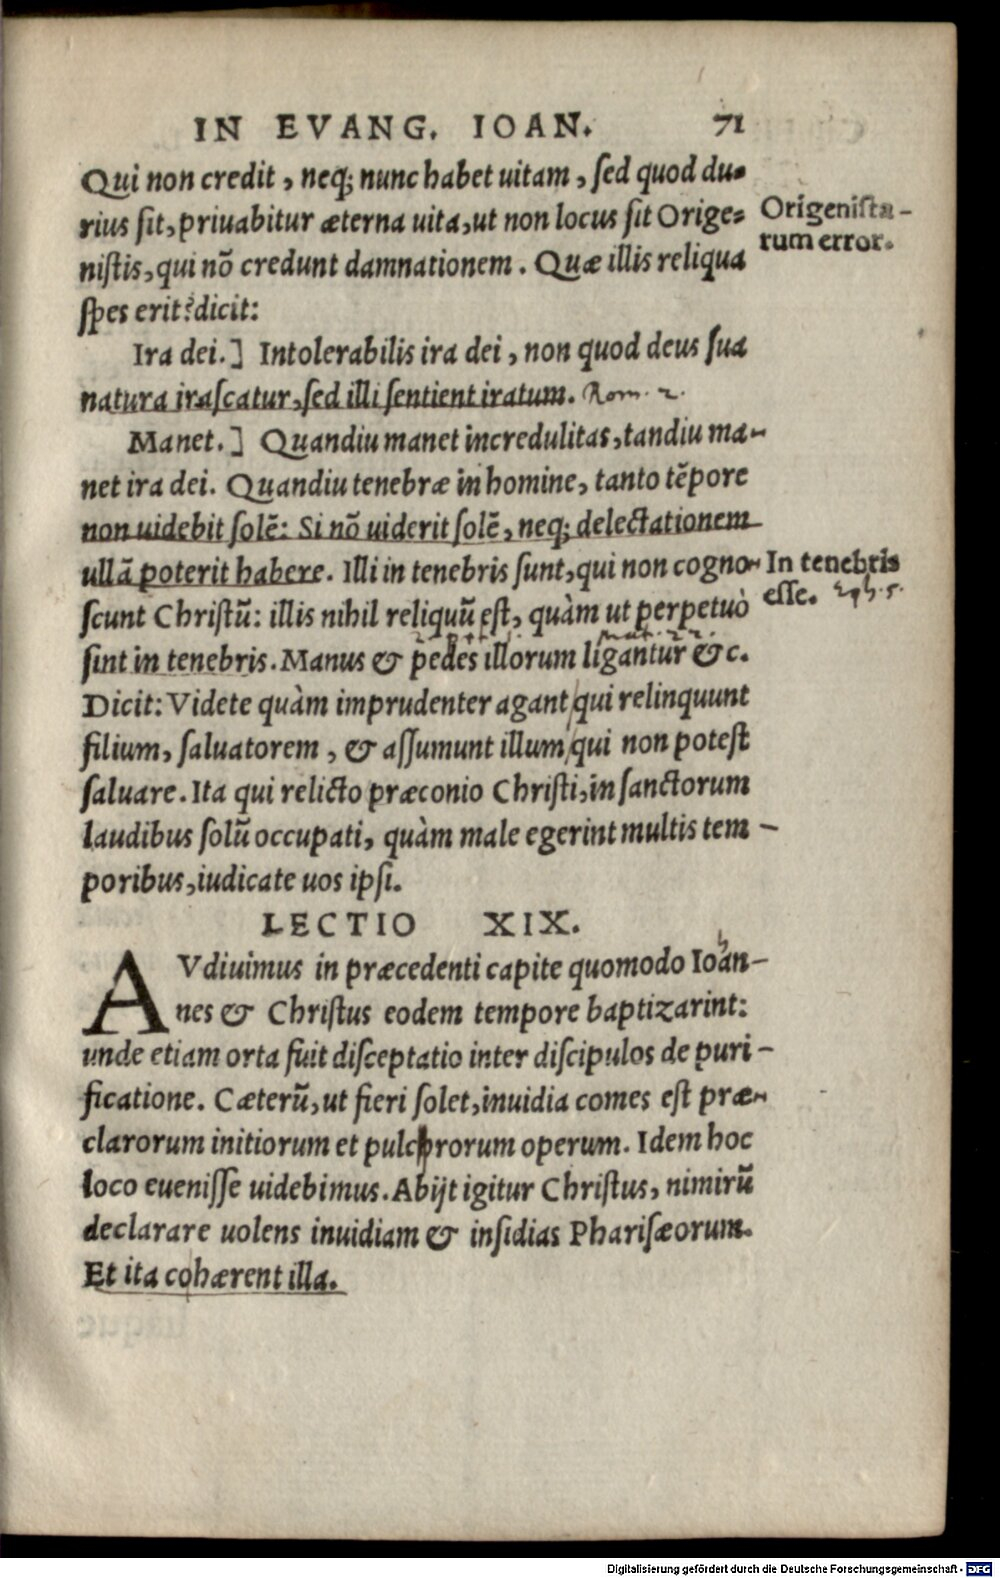 IN EVANG. IOAN. 71
Qui non credit, neq; nunc habet uitam, sed quod du-
rius sit, priuabitur æterna uita, ut non locus sit Orige-
Origenista-
nistis, qui nõ credunt damnationem. Quæ illis reliqua
rum error.
spes erit? dicit:
Ira dei.] Intolerabilis ira dei, non quod deus sua
natura irascatur, sed illi sentient iratum. Rom. 2.
Manet.] Quandiu manet incredulitas, tandiu ma-
net ira dei. Quandiu tenebræ in homine, tanto tẽpore
non uidebit solẽ: Si nõ uiderit solẽ, neq; delectationem
ullã poterit habere. Illi in tenebris sunt, qui non cogno-
In tenebris
scunt Christũ: illis nihil reliquũ est, quàm ut perpetuò
esse. Eph. 5.
mat. 22.
sint in tenebris. Manus & pedes illorum ligantur &c.
Dicit: Videte quàm imprudenter agant/qui relinquunt
filium, saluatorem, & assumunt illum/qui non potest
saluare. Ita qui relicto præconio Christi, in sanctorum
laudibus solũ occupati, quàm male egerint multis tem-
poribus, iudicate uos ipsi.
LECTIO XIX.
AVdiuimus in præcedenti capite quomodo Iohan-
nes & Christus eodem tempore baptizarint:
unde etiam orta fuit disceptatio inter discipulos de puri-
ficatione. Cæterũ, ut fieri solet, inuidia comes est præ-
clarorum initiorum et pulchrorum operum. Idem hoc
loco euenisse uidebimus. Abijt igitur Christus, nimirũ
declarare uolens inuidiam & insidias Pharisæorum.
Et ita cohærent illa.
Digitalisierung gefördert durch die Deutsche Forschungsgemeinschaft - DFG